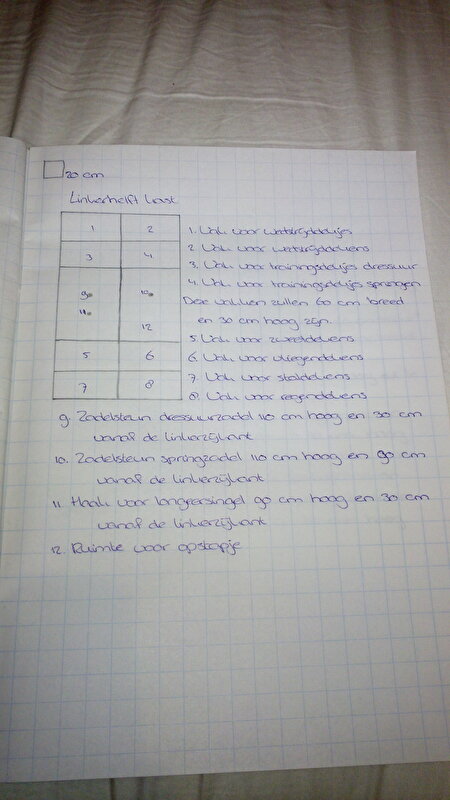 20 cm
Linkerhelft kast
1 2
3 4
9. 10.
11. 12
5 6
7 8
1. Vak voor wedstrijddekjes
2. Vak voor wedstrijddekens
3. Vak voor trainingsdekjes dressuur
4. Vak voor trainingsdekjes springen
Deze vakken zullen 60 cm breed
en 30 cm hoog zijn.
5. Vak voor zweetdekens
6. Vak voor vliegendekens
7. Vak voor staldekens
8. Vak voor regendekens
9. Zadelsteun dressuurzadel 110 cm hoog en 30 cm
vanaf de linkerzijkant
10. Zadelsteun springzadel 110 cm hoog en 90 cm
vanaf de linkerzijkant
11. Haak voor longeersingel 90 cm hoog en 30 cm
vanaf de linkerzijkant
12. Ruimte voor opstapje